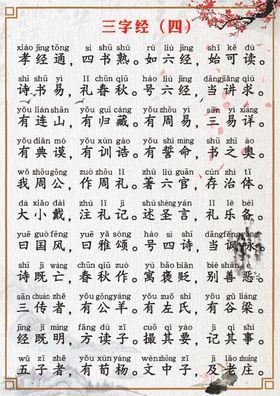 三字经（四）
xiào jīng tōng sì shū shú rú liù jīng shǐ kě dú
孝经通，四书熟。如六经，始可读。
shī shū yì lǐ chūn qiū hào liù jīng dāng jiǎng qiú
诗书易，礼春秋。号六经，当讲求。
yǒu lián shān yǒu guī cáng yǒu zhōu yì sān yì xiáng
有连山，有归藏。有周易，三易详。
yǒu diǎn mó yǒu xùn gào yǒu shì mìng shū zhī ào
有典谟，有训诰。有誓命，书之奥。
wǒ zhōu gōng zuò zhōu lǐ zhù liù guān cún zhì tǐ
我周公，作周礼。著六官，存治体。
dà xiǎo dài zhù lǐ jì shù shèng yán lǐ yuè bèi
大小戴，注礼记。述圣言，礼乐备。
yuē guó fēng yuē yǎ sòng hào sì shī dāng fěng yǒng
曰国风，曰雅颂。号四诗，当讽咏。
shī jì wáng chūn qiū zuò yù bāo biǎn bié shàn è
诗既亡，春秋作。寓褒贬，别善恶。
sān zhuàn zhě yǒu gōng yáng yǒu zuǒ shì yǒu gǔ liáng
三传者，有公羊。有左氏，有谷梁。
jīng jì míng fāng dú zǐ cuō qí yào jì qí shì
经既明，方读子。撮其要，记其事。
wǔ zǐ zhě yǒu xún yáng wén zhōng zǐ jí lǎo zhuāng
五子者，有荀杨。文中子，及老庄。